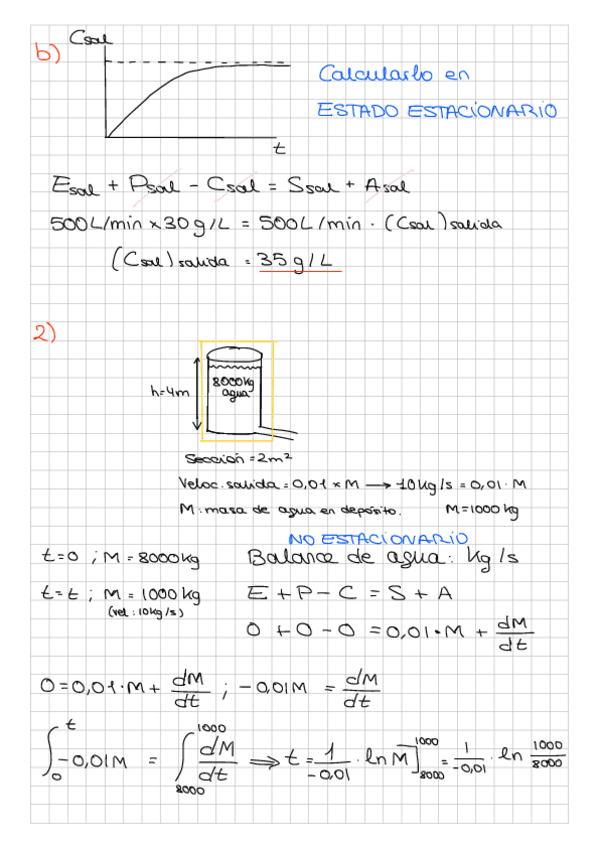 b)
Csal
Calcularlo en
ESTADO ESTACIONARIO
t
Esal + Psal - Csal = Ssal + Asal
500L/min x 30 g/L = 500L/min · (Csal)salida
(Csal)salida = 35 g/L
2)
h=4m
8000kg
agua
Sección = 2m²
Veloc. salida = 0,01 x M → 10kg/s = 0,01 · M
M: masa de agua en depósito. M=1000 kg
NO ESTACIONARIO
t=0 ; M = 8000kg Balance de agua: kg/s
t=t ; M = 1000 kg E + P - C = S + A
(vel: 10kg/s)
0 + 0 - 0 = 0,01·M + dM/dt
0 = 0,01·M + dM/dt ; -0,01M = dM/dt
∫₀ᵗ -0,01M = ∫₈₀₀₀¹⁰⁰⁰ dM/dt ⟹ t = 1/-0,01 · ln M]₈₀₀₀¹⁰⁰⁰ = 1/-0,01 · ln 1000/8000